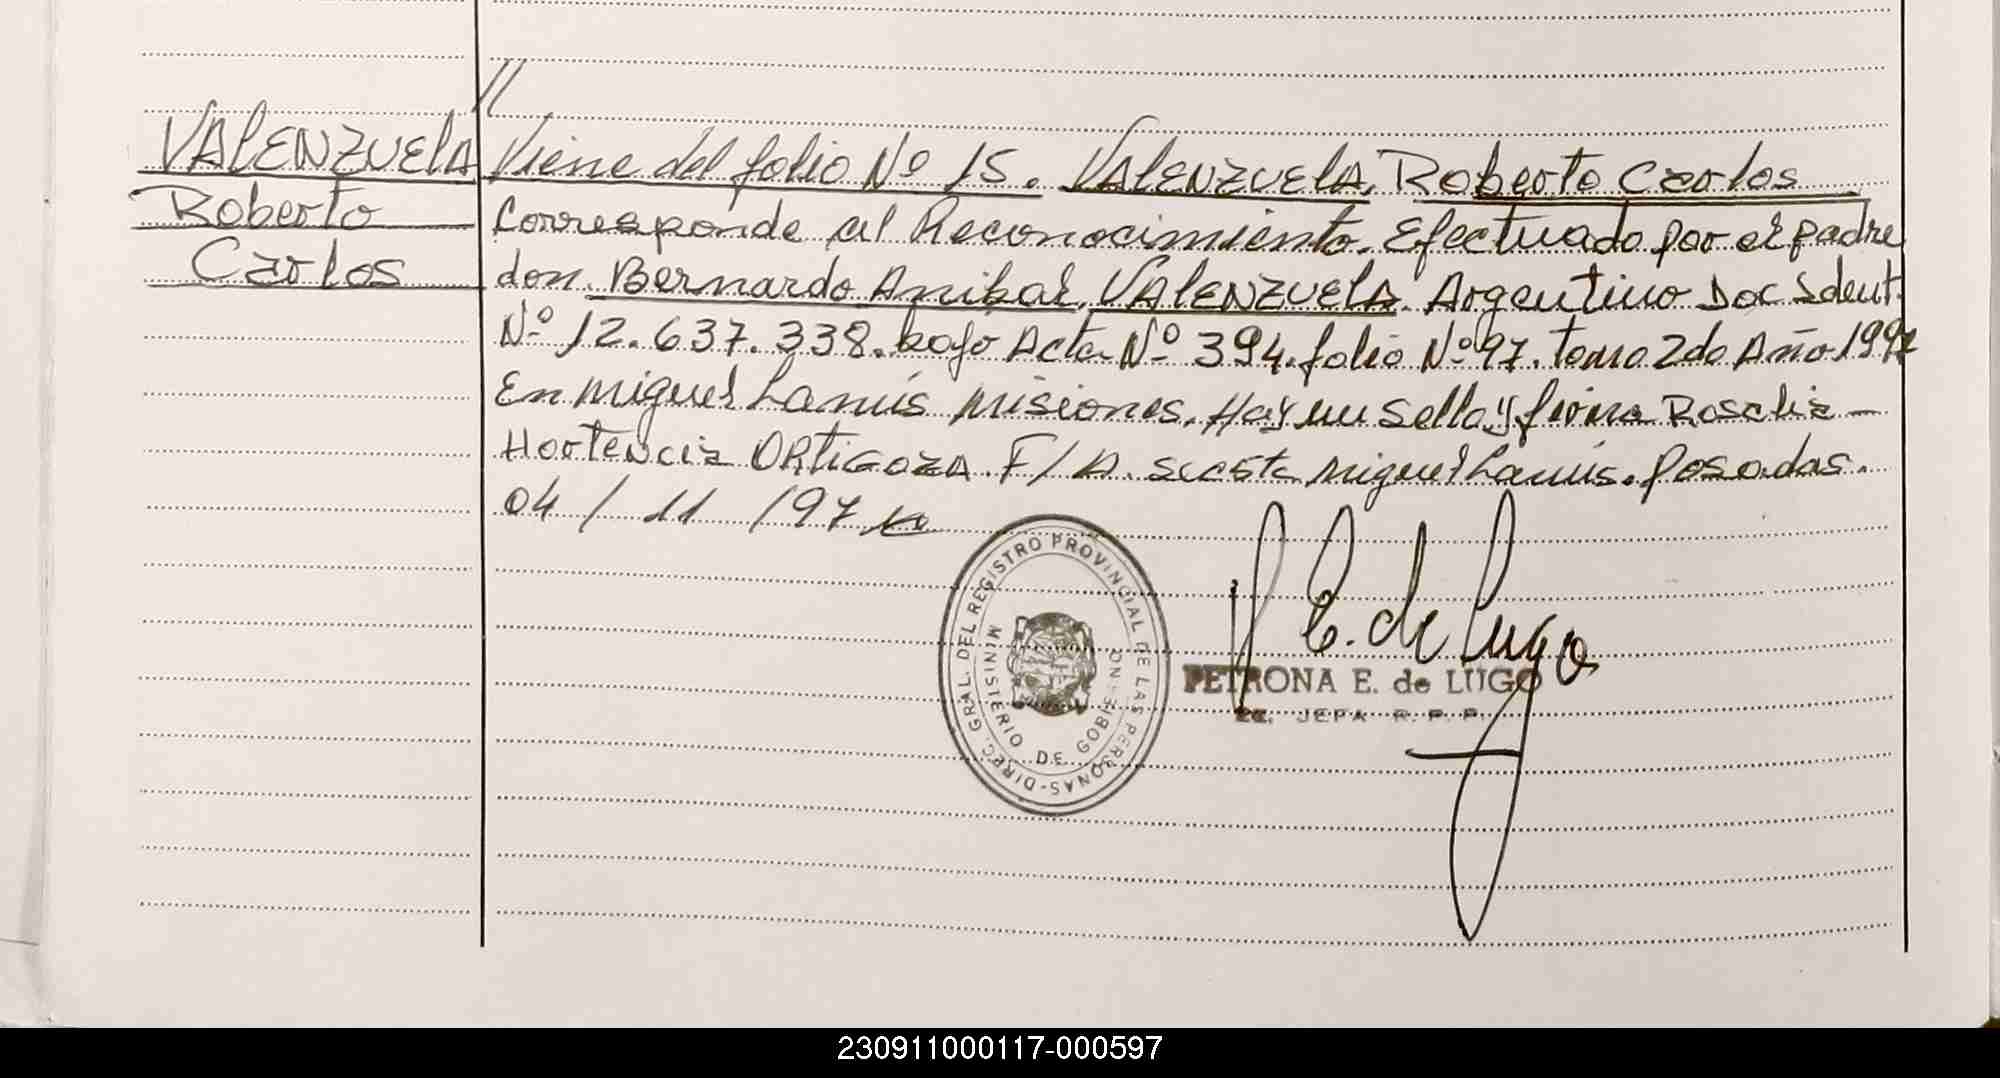 //
VALENZUELA
Roberto
Carlos
Viene del folio Nº 15. VALENZUELA, Roberto Carlos
Corresponde al Reconocimiento. Efectuado por el padre
don. Bernardo Anibal, VALENZUELA. Argentino Doc Ident.
Nº 12.637.338. bajo Acta Nº 394. folio Nº 97. tomo 2do Año 1997
En Miguel Lanús Misiones. Hay un sello y firma Rosalia -
Hortencia ORTIGOZA. F/A. Miguel Lanús. Posadas.
04 / 11 / 97
DIREC. GRAL. DEL REGISTRO PROVINCIAL DE LAS PERSONAS -
MINISTERIO DE GOBIERNO
P E. de Lugo
PETRONA E. de LUGO
JEFA R. P. P.
230911000117-000597